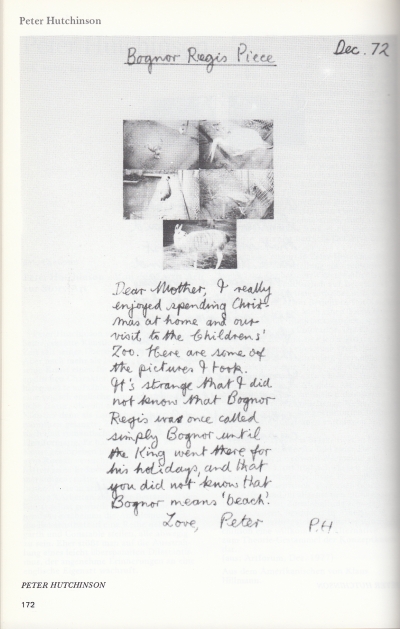 Peter Hutchinson
Bognor Regis Piece
Dec. 72
Dear Mother, I really
enjoyed spending Christ-
mas at home and our
visit to the Childrens'
Zoo. Here are some of
the pictures I took.
It's strange that I did
not know that Bognor
Regis was once called
simply Bognor until
the King went there for
his holidays, and that
you did not know that
Bognor means 'beach'.
Love, Peter
P.H.
PETER HUTCHINSON
172